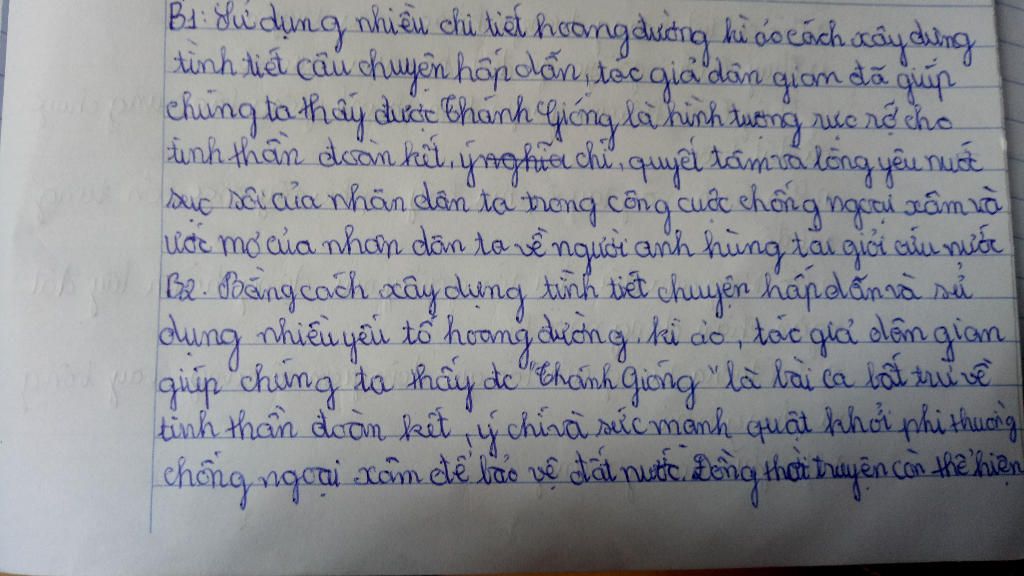 B1: Sử dụng nhiều chi tiết hoang đường kì ảo cách xây dựng
tình tiết câu chuyện hấp dẫn, tác giả dân gian đã giúp
chúng ta thấy được Thánh Gióng là hình tượng rực rỡ cho
tinh thần đoàn kết, ý nghĩa chí, quyết tâm và lòng yêu nước
sục sôi của nhân dân ta trong công cuộc chống ngoại xâm và
ước mơ của nhân dân ta về người anh hùng tài giỏi cứu nước
B2. Bằng cách xây dựng tình tiết chuyện hấp dẫn và sử
dụng nhiều yếu tố hoang đường, kì ảo, tác giả dân gian
giúp chúng ta thấy đc "Thánh Gióng" là bài ca bất trừ về
tinh thần đoàn kết, ý chí và sức mạnh quật khởi phi thường
chống ngoại xâm để bảo vệ đất nước. Đồng thời truyện còn thể hiện